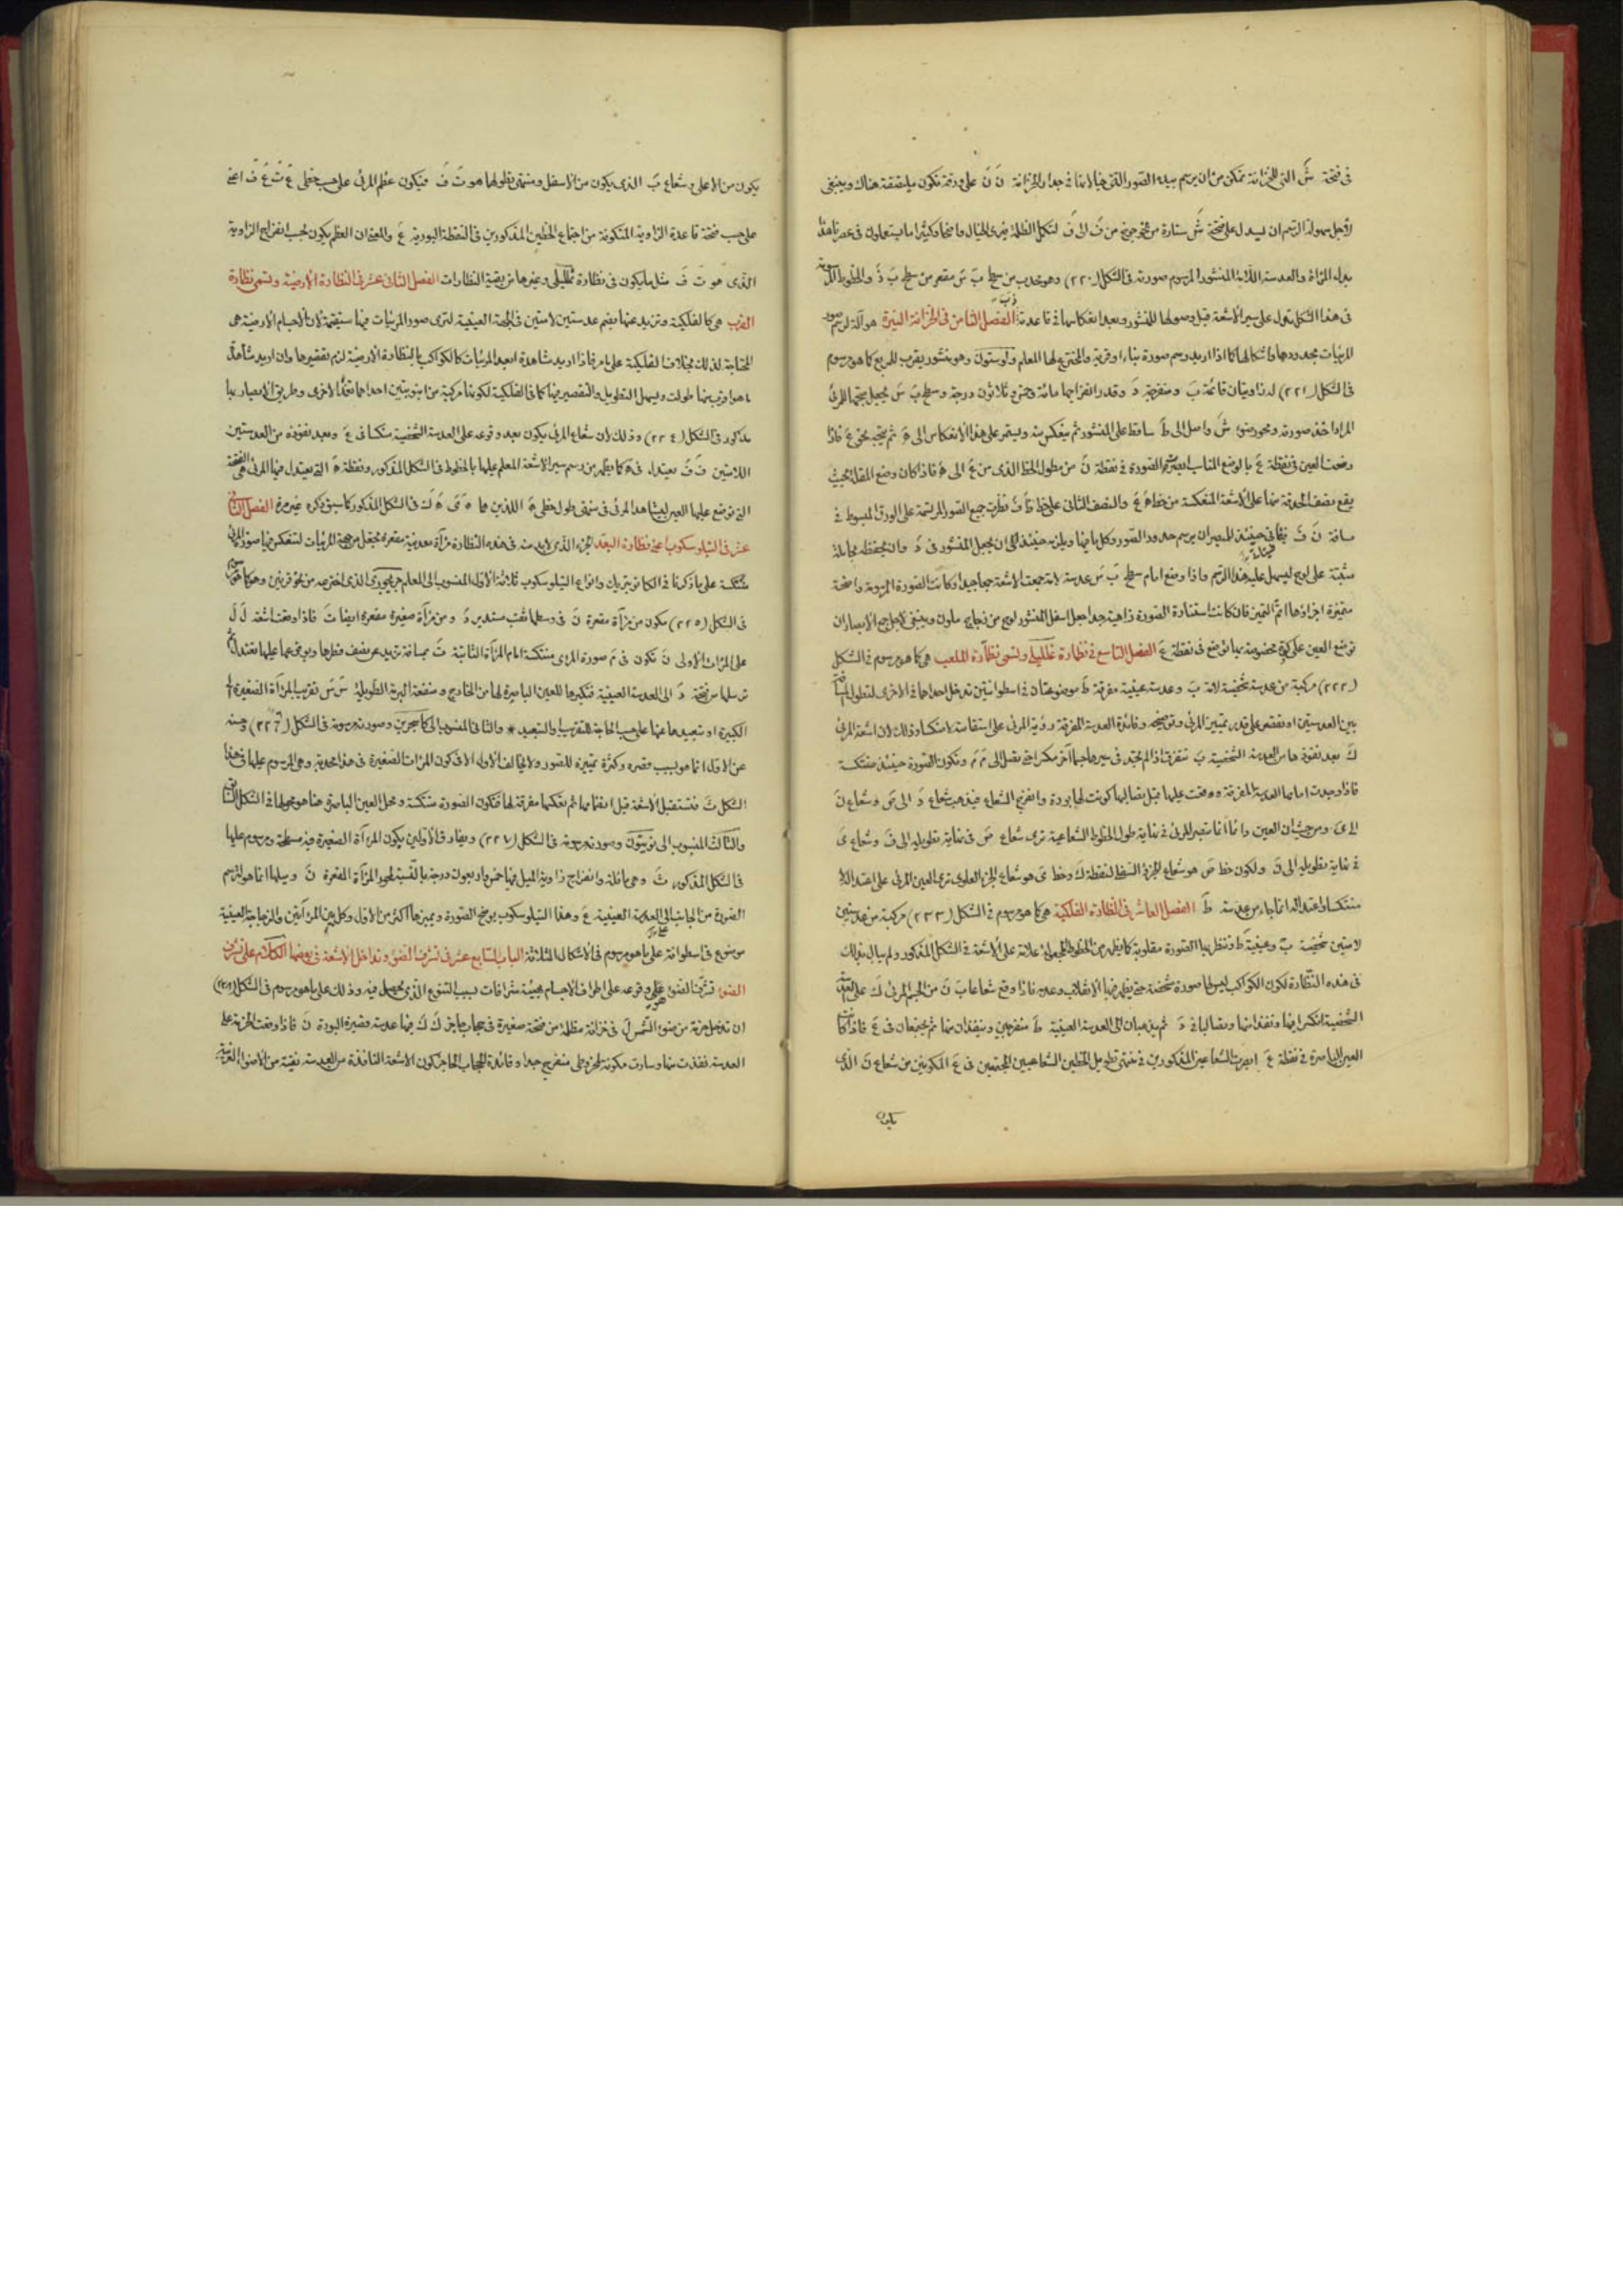 فى فتحة شَ التى للخزانة تمكن من ان يرسم بيده الصور التى خيالاتها فى جدار الخزانة نَ نَ على ورقة تكون ملتصقة هناك وينبغى
لاجل سهولة الرسم ان يسدل على فتحة شَ ستارة من جوخ من فَ الى فَ لتكمل الظلمة فيرى الخيال واضحا وكثيرا ما يستعملون فى عصرنا هذا
بدل المرآة والعدسة اللامة المنشور المرسوم صورته فى الشكل (٢٢٠) وهو محدب من سطح بَ سَ مقعر من سطح بَ دَ والخطوط المرسومة
فى هذا الشكل تدل على سير الاشعة قبل وصولها للمنشور وبعد انعكاسها فى قاعدته الفصل الثامن فى الخزانة النيرة هو آلة لرسم صور
المرئيات بحدودها واشكالها كما اذا اريد رسم صورة بناء او قرية والمخترع لها المعلم ولوستون وهو منشور يقرب للمربع كما هو مرسوم
فى الشكل (٢٢١) له زاويتان قائمة بَ ومنفرجة دَ وقدر انفراجها مائة وخمس وثلاثون درجة وسطح بَ سَ يجعل بجهة المرئى
المراد اخذ صورته ومحور ضوء شَ واصل الى طَ ساقط على المنشور ثم ينعكس منه ويستمر على هذا الانعكاس الى هَ ثم يتجه نحو عَ فاذا
وضعت العين فى نقطة عَ بالوضع المناسب ابصرت الصورة فى نقطة نَ من مطول الخط الذى من عَ الى هَ فاذا كان وضع المقلة بحيث
يقع نصف الحدقة منها على الاشعة المنعكسة من خط هَ عَ والنصف الثانى على خط قَ فَ نظرت جميع الصور المرتسمة على الورق المبسوط فى
مسافة نَ فَ فيتأتى حينئذ للمبصر ان يرسم حدود الصور وكل ما فيها ويلزمه حينئذ الى ان يجعل المنشور فى دَ وان يحفظه بحاملة
مثبتة على لوح ليسهل عليه هذا الرسم واذا وضع امام سطح بَ سَ عدسة لامة جمعت الاشعة جمعا جيدا وكانت الصورة المرسومة واضحة
متميزة اجزاؤها اتم التميز فان كانت استنارة الصورة زاهية جدا جعل اسفل المنشور لوح من زجاج ملون وينبغى لاجل جمع الابصار ان
توضع العين على كيفية مخصوصة بها توضع فى نقطة عَ الفصل التاسع فى نظارة غلليلى وتسمى نظارة الملعب هى كما هو مرسوم فى الشكل
(٢٢٢) مركبة من عدسة شخصية لامة بَ وعدسة عينية مفرقة طَ موضوعتان فى اسطوانتين تدخل احداهما فى الاخرى لتطول المسافة
بين العدستين او تقصر على قدر تمييز المرئى وتوضحه وفائدة العدسة المفرقة رؤية المرئى على استقامته لا منتكسا وذلك لان اشعة المرئى
كَ بعد نفوذها من العدسة الشخصية بَ تتفرق اذا لم تجد فى سيرها جسما آخر مكسرا حتى تصل الى مَ مَ وتكون الصورة حينئذ منتكسة
فاذا وجدت امامها العدسة المفرقة ووقعت عليها قبل اتصالها كونت لها بؤرة وانفرج الشعاع فيذهب شعاع دَ الى صَ وشعاع نَ
الى ىَ ومن حيث ان العين دائما انما تبصر المرئى فى نهاية طول الخطوط الشعاعية ترى شعاع صَ فى نهاية تطويله الى فَ وشعاع ىَ
فى نهاية تطويله الى قَ ولكون خط صَ هو شعاع الجزء السفلى لنقطة كَ وخط ىَ هو شعاع الجزء العلوى ترى العين المرئى على اعتداله لا
منتكسا واعتداله انما جاء من عدسة طَ الفصل العاشر فى النظارة الفلكية هى كما هو مرسوم فى الشكل (٢٢٣) مركبة من عدستين
لامتين شخصية بَ وعينية طَ وتنظر بها الصورة مقلوبة كما يظهر من الخطوط المجعولة علامة على الاشعة فى الشكل المذكور ولم يبال بذلك
فى هذه النظارة لكون الكواكب ليس لها صورة شخصية حتى يظهر فيها الانقلاب وعدمه فاذا وقع شعاعا بَ نَ من الجسم المرئى كَ على العدسة
الشخصية انكسرا فيها ونفذا منها ووصلا الى دَ ثم يذهبان الى العدسة العينية طَ منفرجين وينفذان منها ثم يجتمعان فى عَ فاذا كانت
العين الباصرة فى نقطة عَ ابصرت الشعاعين المذكورين فى منتهى تطويل الخطين الشعاعيين المجتمعين فى عَ المكونين من شعاع نَ الذى
يكون
يكون من الاعلى وشعاع بَ الذى يكون من الاسفل ومنتهى تطولها هو تَ فَ فيكون عظم المرئى على حسب خطى عَ تَ عَ فَ اعنى
على حسب فتحة قاعدة الزاوية المتكونة من اجتماع الخطين المذكورين فى النقطة البؤرية عَ والمعنى ان العظم يكون بحسب انفراج الزاوية
الذى هو تَ فَ مثل ما يكون فى نظارة غلليلى وغيرها من بقية النظارات الفصل الثانى عشر فى النظارة الارضية وتسمى نظارة
القرب هى كالفلكية وتزيد عنها بضم عدستين لامتين فى الجهة العينية لترى صور المرئيات فيها مستقيمة لان الاجسام الارضية هى
المحتاجة لذلك بخلاف الفلكية على ما مر فاذا اريد مشاهدة ابعد المرئيات كالكواكب بالنظارة الارضية لزم تقصيرها وان اريد مشاهدة
ما هو اقرب منها طولت ويسهل التطويل والتقصير فيها كما فى الفلكية لكونها مركبة من انبوبتين احداهما تغمد فى الاخرى وطريق الابصار بها
مذكور فى الشكل (٢٢٤) وذلك ان شعاع المرئى يكون بعد وقوعه على العدسة الشخصية منتكسا فى عَ وبعد نفوذه من العدستين
اللامتين فَ فَ يعتدل فى هَ كما يظهر من رسم سير الاشعة المعلم عليها بالخطوط فى الشكل المذكور ونقطة هَ التى يعتدل فيها المرئى هى الفتحة
التى توضع عليها العين ليشاهد المرئى فى منتهى طول خطى هَ اللذين هما هَ ىَ هَ كَ فى الشكل المذكور كما سبق ذكره غير مرة الفصل الثالث
عشر فى التيلوسكوب اعنى نظارة البعد الجزء الذى لابد منه فى هذه النظارة مرآة معدنية مقعرة تجعل من جهة المرئيات لتنعكس فيها صورة المرئى
منتكسة على ما ذكرنا فى الكاتوبتريك وانواع التيلوسكوب ثلاثة الاول المنسوب الى المعلم جريجورى الذى اخترعه من نحو قرنين وهو كما هو مرسوم
فى الشكل (٢٢٥) مكون من مرآة مقعرة نَ فى وسطها ثقب مستدير دَ ومن مرآة صغيرة مقعرة ايضا تَ فاذا وقعت اشعة لَ لَ
على المرآة الاولى نَ تكون فى مَ صورة المرئى منتكسة امام المرآة الثانية تَ بمسافة تزيد عن نصف قطرها وبوقوعها عليها تعتدل ثم
ترسلها من فتحة دَ الى العدسة العينية فتكبرها للعين الباصرة لها من الخارج ومنفعة البرمة الطويلة سَ سَ تقريب المرآة الصغيرة الى
الكبيرة او تبعيدها عنها على حسب الحاجة للتقريب او التبعيد * والثانى المنسوب الى كاسجرين وصورته مرسومة فى الشكل (٢٢٦) وحسنه
عن الاول انما هو بسبب قصره وكثرة تمييزه للصور ولا يخالف الاول الا فى كون المرآة الصغيرة فى هذا محدبة وهى المرسوم عليها فى هذا
الشكل تَ فتستقبل الاشعة قبل التقائها ثم تعكسها مفرقة لها فتكون الصورة منتكسة ومحل العين الباصرة هنا هو محلها فى الشكل السابق
والثالث المنسوب الى نيوتون وصورته مرسومة فى الشكل (٢٢٧) ويفارق الاولين بكون المرآة الصغيرة فيه مسطحة ومرسوم عليها
فى الشكل المذكور تَ وهى مائلة وانفراج زاوية الميل فيها خمس واربعون درجة بالنسبة لمحور المرآة المقعرة نَ وميلها انما هو لترسم
الصورة من الجانب الى العدسة العينية عَ وهذا التيلوسكوب يوضح الصورة ويميزها اكثر من الاول وكل من المرآتين والزجاجة العينية
موضوع فى اسطوانة على ما هو مرسوم فى الاشكال الثلاثة الباب السابع عشر فى تشرف الضوء وتداخل الاشعة فى بعضها الكلام على تشرف
الضوء تشرف الضوء هو وقوعه على اطراف الاجسام بهيئة شرافات بسبب التنوع الذى يحصل فيه وذلك على ما هو مرسوم فى الشكل (٢٢٨)
ان تدخل حزمة من ضوء الشمس لَ فى خزانة مظلمة من فتحة صغيرة فى حجاب حاجز كَ كَ فيها عدسة قصيرة البؤرة نَ فاذا وقعت الحزمة على
العدسة نفذت منها وصارت مكونة لمخروطى منفرج جدا وفائدة الحجاب الحاجز كون الاشعة النافذة من العدسة نقية من الاضواء الغريبة